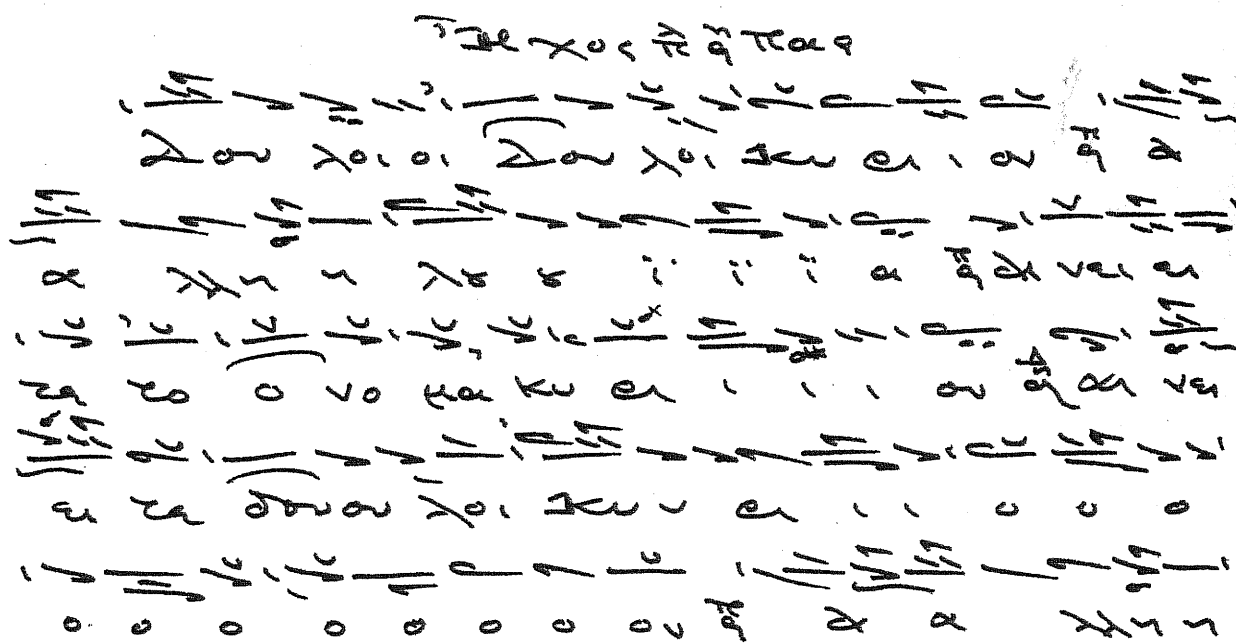 Ἦχος πα
Δου λοι οι Δου λοι Κυ ρι ι ον α
α λλη η λȣ ȣ ϊ ϊ ϊ α αι νει ει
τε το ο νο μα Κυ ρι ι ι ι ου αι νει
ει τε δουου λοι Κυυ υ ρι ι ι ο ο ο
ο ο ο ο ο ο ο ον α α λλη η